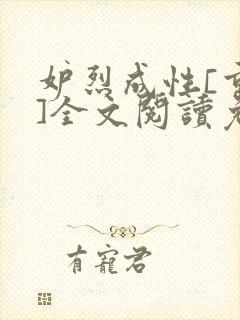 妒烈成性[重
]全文閱讀老
有寵君